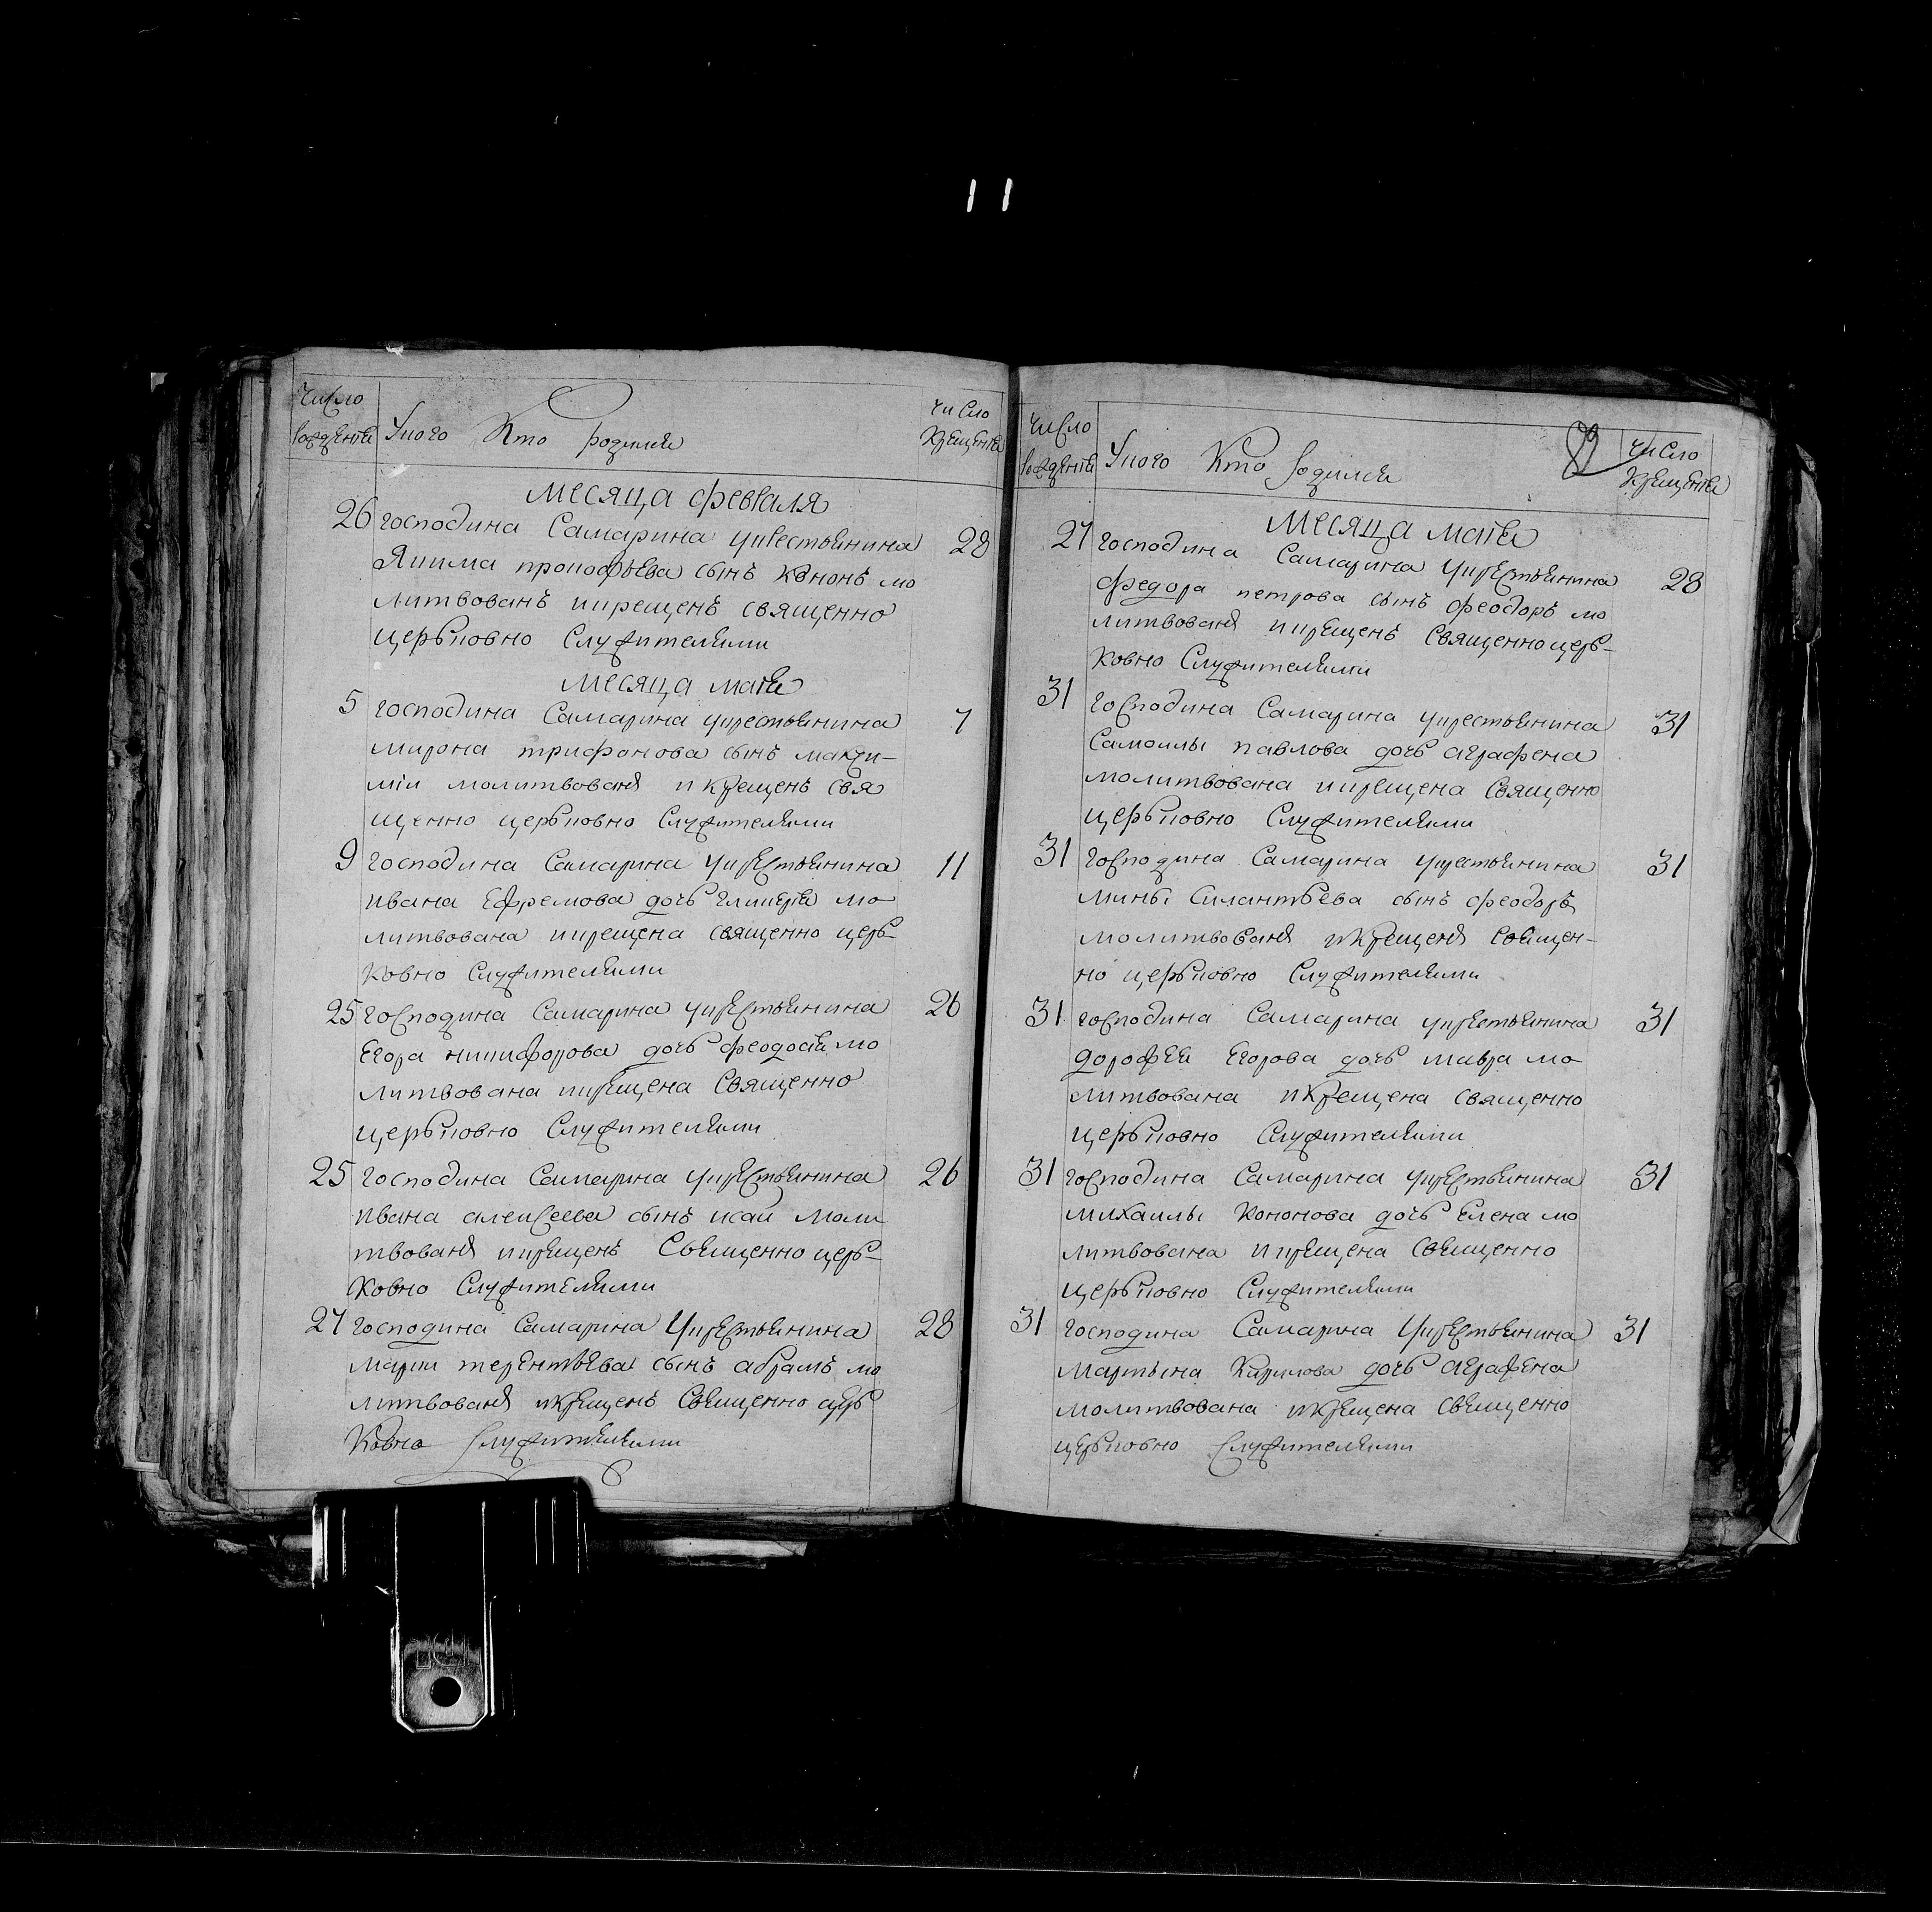 11
число рожденїя
Укого Кто родился
число крещенїя
месяца февраля
26 господина Самарина укрестьянина 28
Якима прокофьева сынъ Кононъ мо
литвованъ икрещенъ священно
церьковно Служителями
месяца маїя
5 господина Самарина укрестьянина 7
мирона трифонова сынъ макси-
мїи молитвованъ и крещенъ свя
щенно церьковно Служителями
9 господина Самарина укрестьянина 11
ивана Ефремова дочь гликерїя мо-
литвована икрещена священно церь-
ковно Служителями
25 господина Самарина укрестьянина 26
Егора никифорова дочь феодосїя мо
литвована икрещена Священно
церьковно Служителями
25 господина Самарина укрестьянина 26
ивана алексеева сынъ исаи моли
твованъ икрещенъ Священно церь-
ковно Служителями
27 господина Самарина Укрестьянина 28
марки терентьева сынъ абрамъ мо
литвованъ икрещенъ Священно церь
ковно Служителями
число рожденїя
Укого Кто родился
число крещенїя
месяца маїя
27 господина Самарина укрестьянина 28
федора петрова сынъ феодоръ мо
литвованъ икрещенъ Священноцерь-
ковно Служителями
31 господина Самарина укрестьянина 31
Самоилы павлова дочь аграфена
молитвована икрещена Священно
церьковно Служителями
31 господина Самарина укрестьянина 31
мины Силантьева сынъ феодоръ
молитвованъ икрещенъ Священ-
но церьковно Служителями
31 господина Самарина укрестьянина 31
дорофея Егорова дочь мавра мо-
литвована икрещена священно
церьковно Служителями
31 господина Самарина укрестьянина 31
михаилы Кононова дочь Елена мо
литвована икрещена Священно
церьковно Служителями
31 господина Самарина Укрестьянина 31
мартына Кирилова дочь аграфена
молитвована икрещена священно
церьковно Служителями